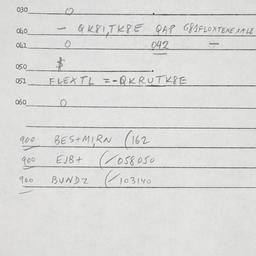 030 0
040 - QK81,TK8E QAP G81FLOXTEXEXALE
041 0 042 -
050 $
051 FLEXTL =-QKRUTK8E
060 0
900 BES+MIRN (162
900 EJB+ (/058050
900 BUNDZ (/103140